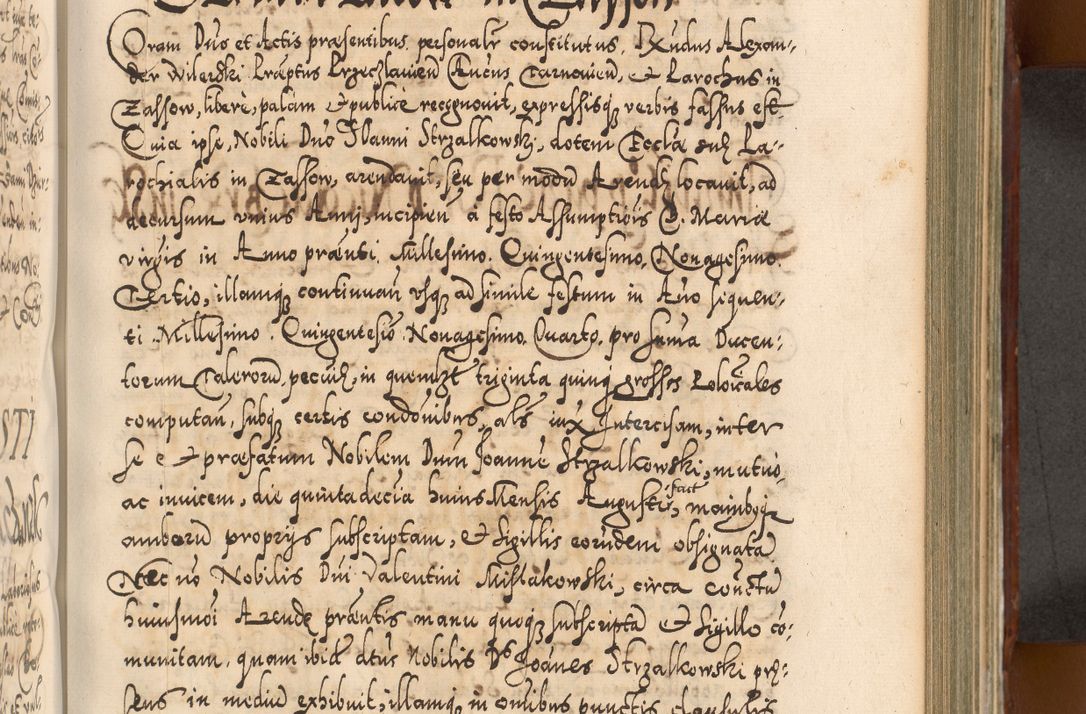 in Zassow
Coram Dño et Actis præsentibus personalr constitutus, Rx̃ndus Alexan-
der Wilerski Præptus Przeczlavien Aucus Tarnovien, et Parochus in
Zassow, liberè, palàm et publicè recognovit, expressisq verbis fassus est
Quia ipse, Nobili Dño Ioanni Strzalkowski, dotem Ecclæ suæ Pa-
rochialis in Zassow, arendavit, seu per modũ Arendæ locavit, ad
decursum unius Anni, incipien à festo Assumptiõis B. Mariæ
virgis in Anno præñti Millesimo Quingentesimo, Nonagesimo
Tertio, illamq continuañ usq ad simile festum in Año sequen-
ti Millesimo Quingentesiõ Nonagesimo Quarto, pro suma Ducen-
torum Talerorũ, pecuñ, in quemlzt triginta quinq grossos Polõcales
computañ, subq certis condõnibus, als iux Intercisam, inter
se e et præfatum Nobilem Dñum Joanne Strzalkowski, mutuo
ac invicem, die quinta decĩa huius Mensis Augusti, fact manibq
amborũ proprijs subscriptam, et Sigillis eorũdem obsignatã
Nec nõ Nobilis Dñi Valentini Mislakowski, circa coñctũ
huiusmõi Arendæ præñtis manu quoq subscriptã et Sigillo cõ-
munitam, quam ibid̃ atus Nobilis Ds Joañes Strzalkowski præ-
sens in mediũ exhibuit, illamq in omibus punctis clausulis